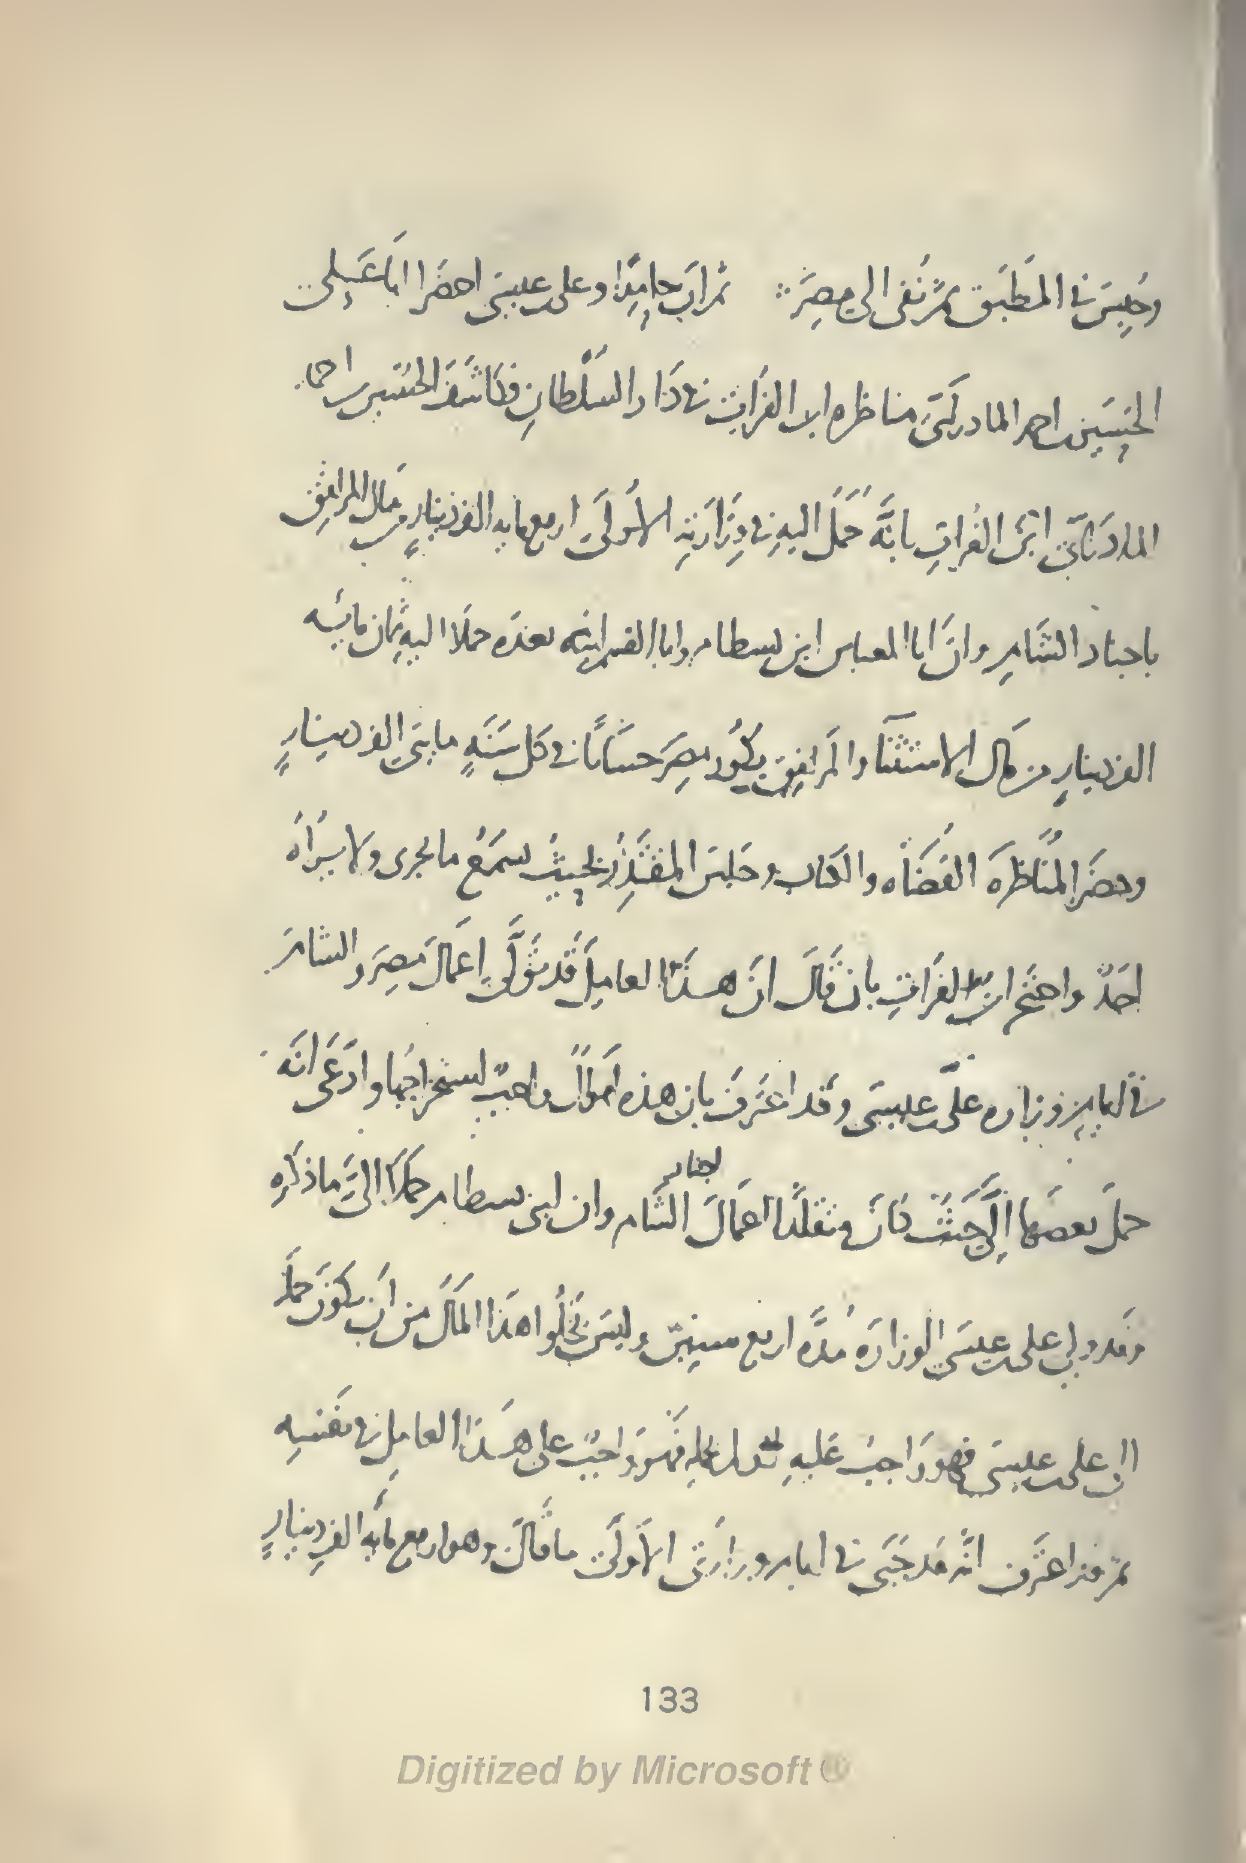 وحُبِسَ في المَطبَق ثم نُفى الى مِصرَ ثم ان حامِدًا وعلى بن عيسَى احضَرا ابا عَلِى
الحُسَين بن احمد المادرائى مناظره ابن الفُرات في دَار السُلْطانِ فكاشَفَ الحُسَين بن احمد
المادَرائى ابنَ الفُراتِ بانَّه حَمَلَ اليهِ في وِزَارَتِهِ الاُولَى اربع مايه الف دينارٍ من مال المَرافِق
باجناد الشَامِ وانَ ابا العباس ابن بسطام وابا القسم ابنه بعدَه حملا اليهِ ثمان مائه
الف دينارٍ من مَال الاستثنآ والمَرافِق بكُوَر مِصرَ حسَابًا في كل سَنَةٍ مايتى الف دينارٍ
وحضرَ المُنَاظَرَه القُضَاه والكتاب وجلسَ المقتَدِرُ بحَيثُ يسمَعُ ما يجرى ولا يرَاهُ
احَدٌ واحتَج ابن الفراتِ بان قالَ انَ هذَا العامِلَ قد تَولَّى اعمَالَ مِصرَ والشامَ
في ايامِ وزاره علىّ بن عيسَى وقد اعترَفَ بان هذه اموَالٌ واجبٌ استخراجُها وادّعَى انَّه
حملَ بعضَها اِلَىَّ حيث كانَ متقلّدًا اعمَالَ اجناد الشَام وان ابن بسطام حملَ الىَّ ما ذكره
وقد ولي على بن عيسَى الوزارَه مُدَّه اربع سنين وليسَ يَخلُوا هَذا المَالُ من ان يكونَ حملَه
الى على بن عيسَى فهو وَاجبٌ عَليهِ او لم يحمله فهُو وَاجبٌ على هذَا العامِل في نفسِه
ثم قد اعتَرَف انَّه قد جَبَى في ايام وزارَتى الاُولَى ما قالَ وهو اربع مايه الف دينَارٍ
133
Digitized by Microsoft ®